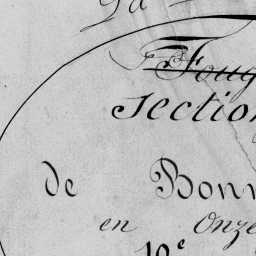 La
Foug
Section
de Bonn
en Onze
10e